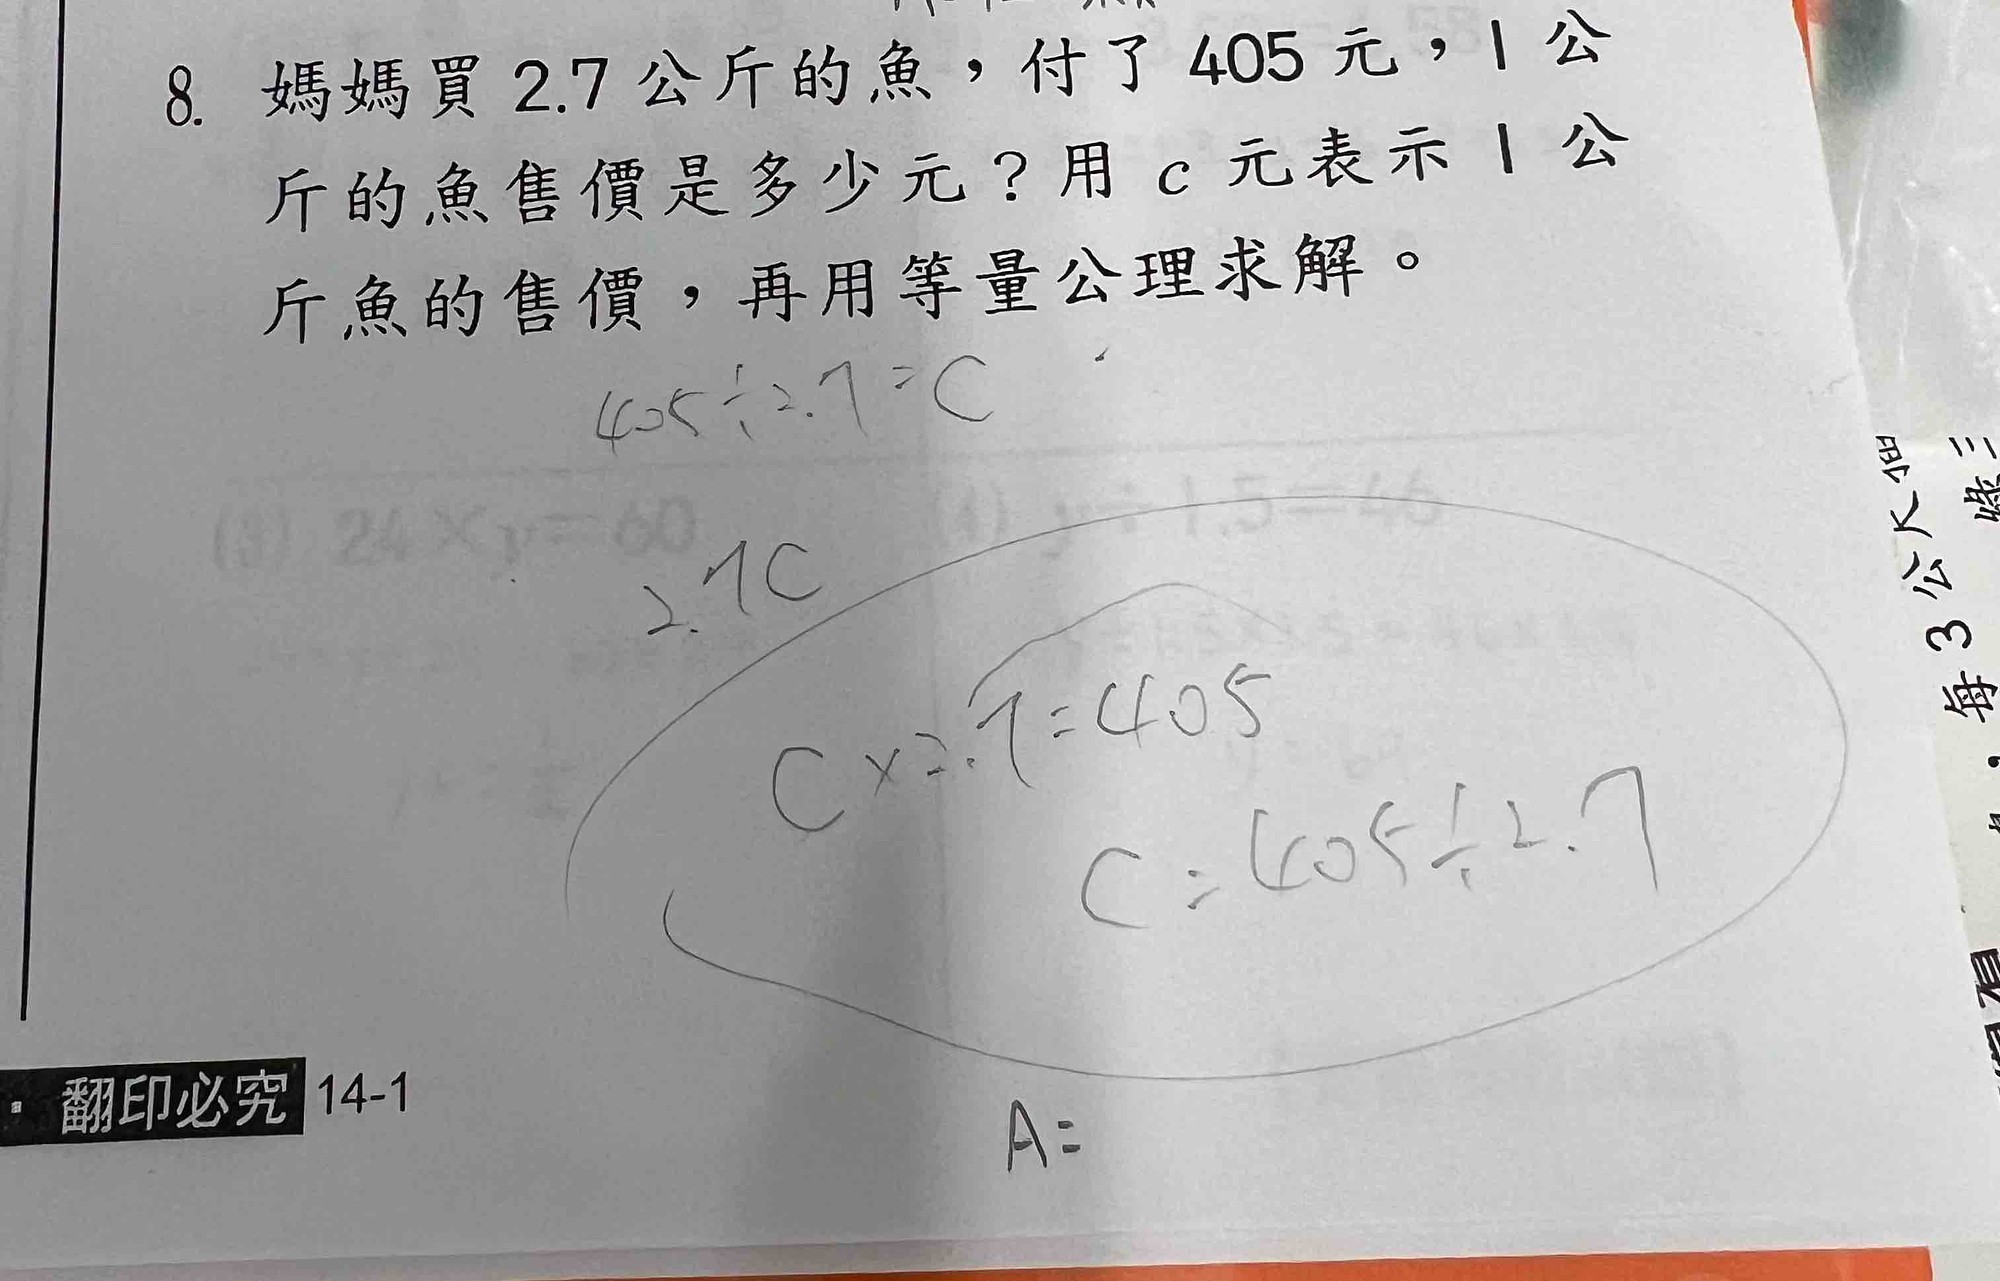 8. 媽媽買 2.7 公斤的魚，付了 405 元，1 公
斤的魚售價是多少元？用 c 元表示 1 公
斤魚的售價，再用等量公理求解。
405÷2.7=C
(3) 24×y=60
(4) y÷1.5=46
2.7C
C×2.7=405
C=405÷2.7
翻印必究 14-1
A=
每3公尺